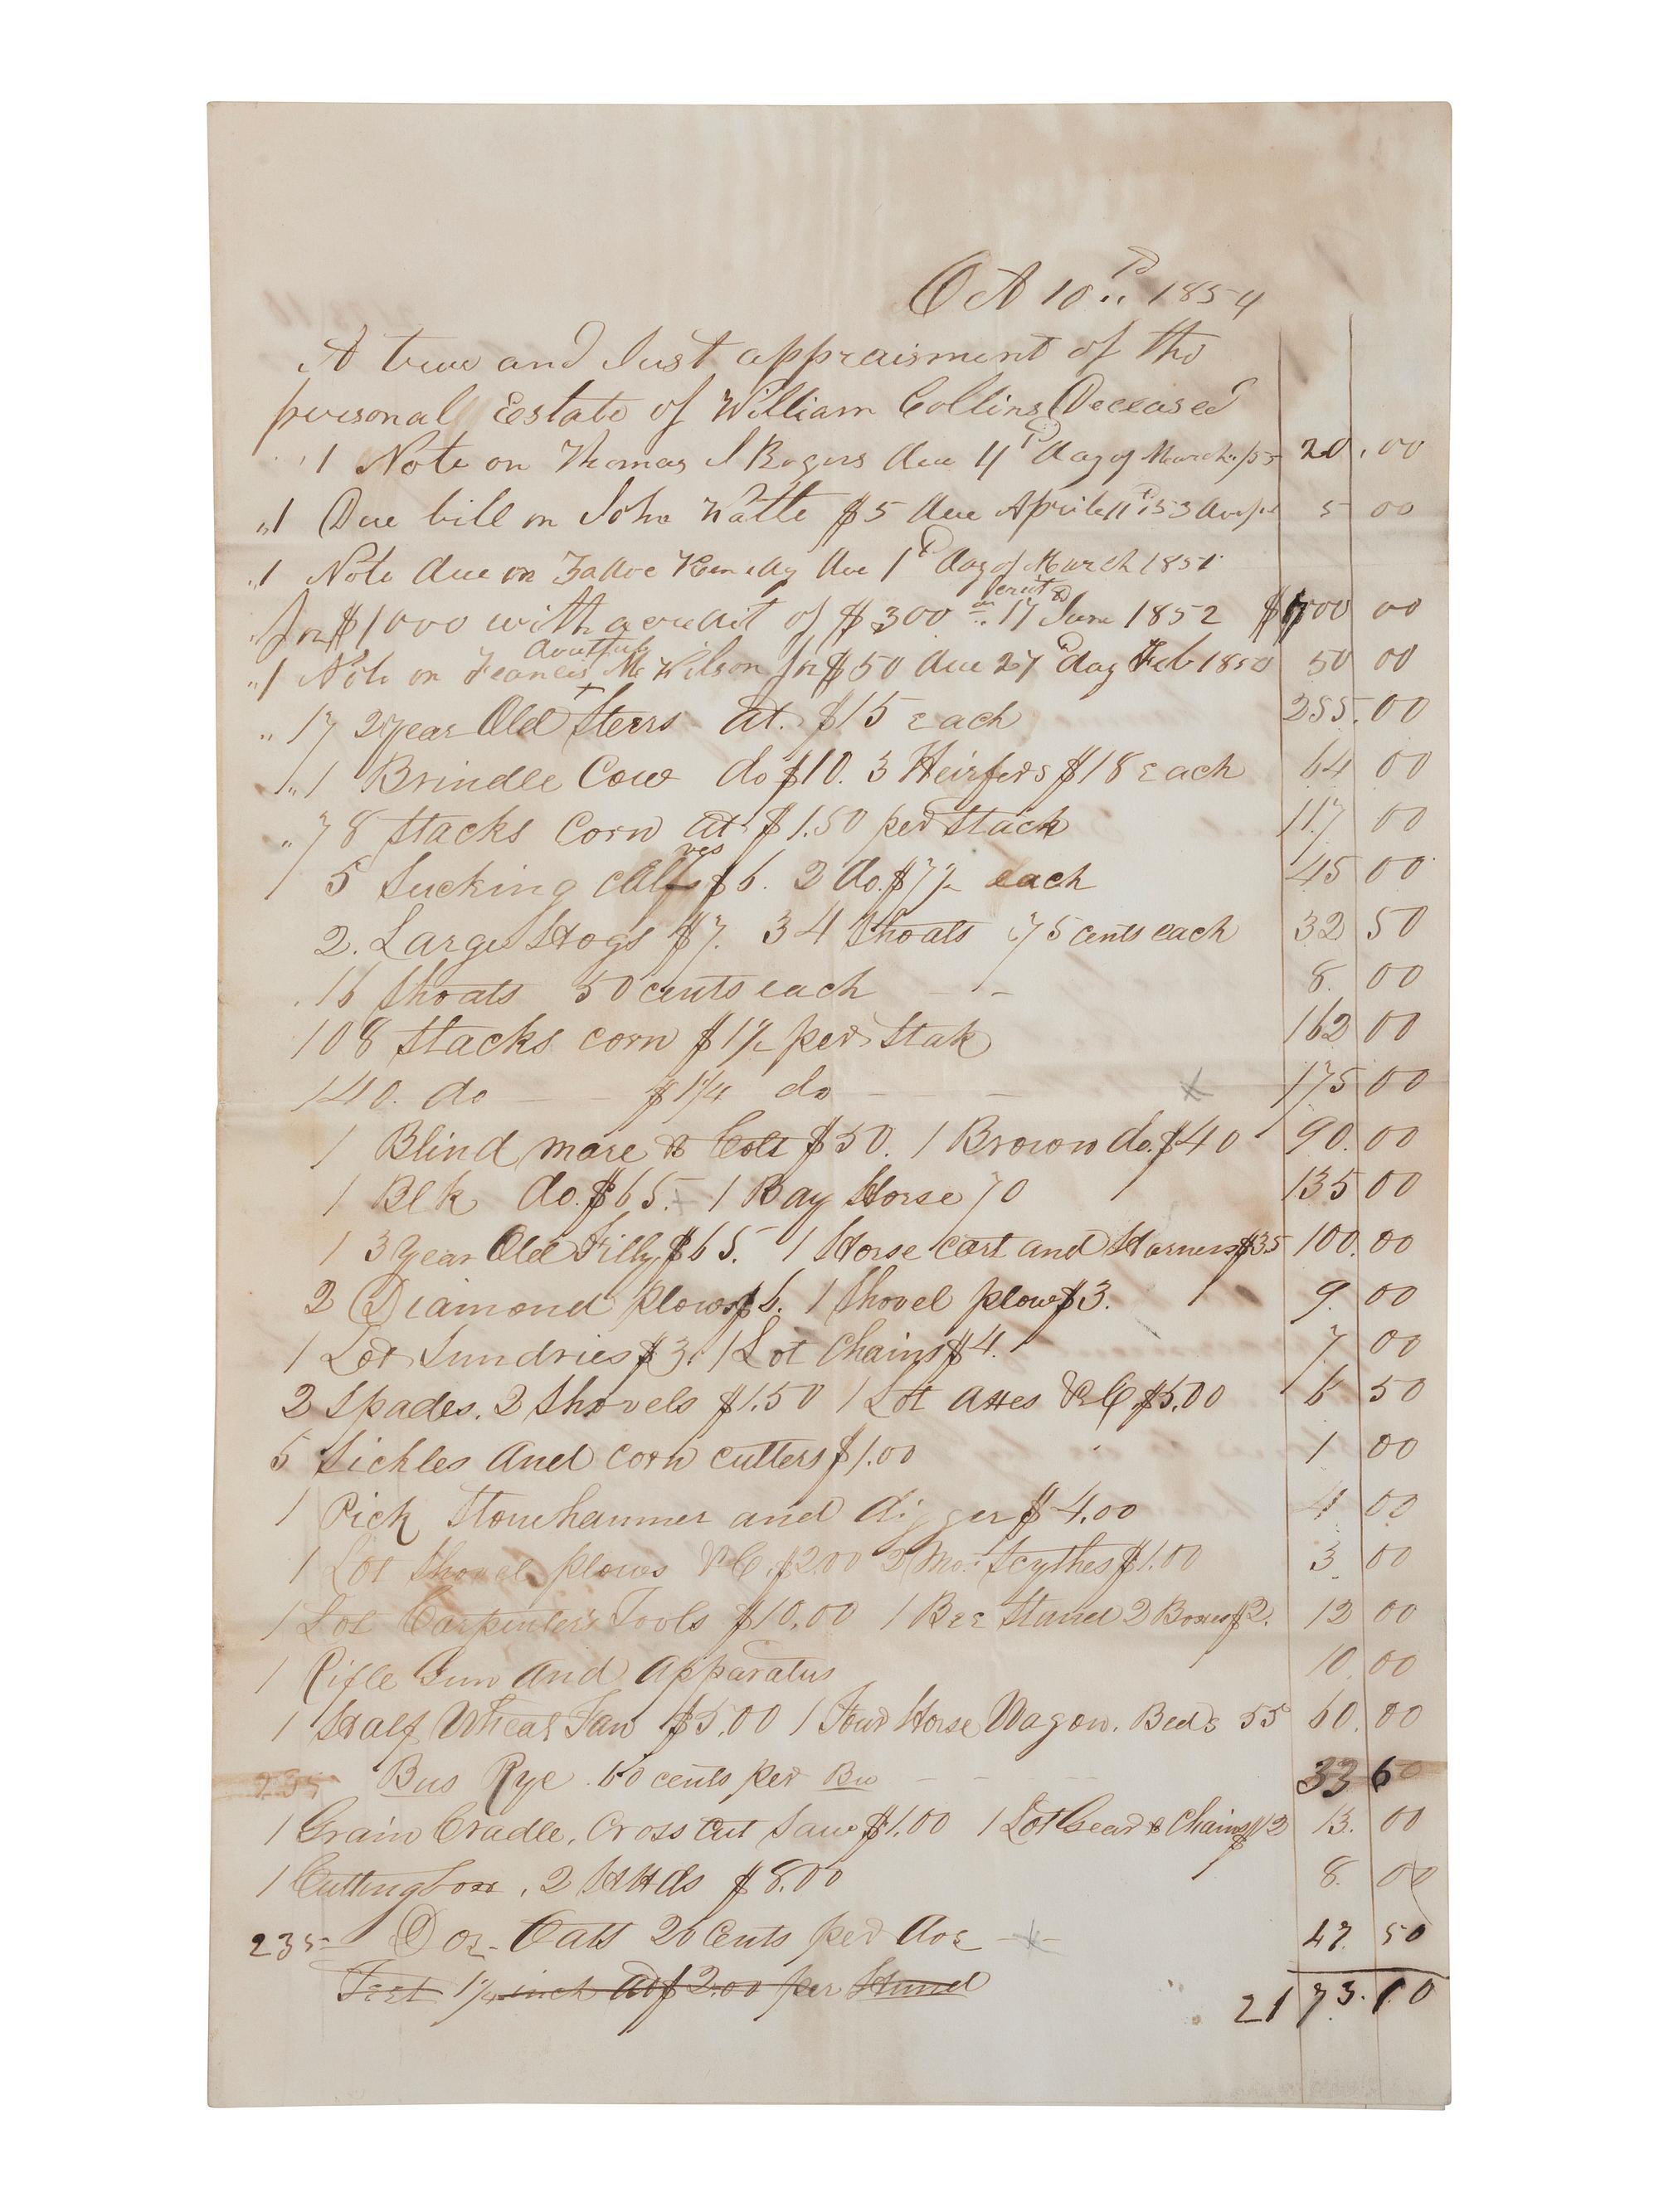 Oct 10th 1854
A true and Just appraisment of the
personal Estate of William Collins Deceased
1 Note on Thomas J Rogers due 4th day of March /55 20.00
1 Due bill on John Watte $5 due April 11th 53 5 00
1 Note due on due 1st day of March 1851
for $1000 with a credit of $300 on 17 June 1852 $700 00
1 Note on Frances M Wilson for $50 due 27th day Feb 1850 50 00
17 2 year Old Steers at $15 each 255.00
1 Brindle Cow do $10. 3 Heirfers $18 each 64 00
78 Stacks Corn at $1.50 per Stack 117 00
5 Sucking calves $6. 2 do. $7½ each 45 00
2. Large Hogs $7. 34 Shoats 75 cents each 32 50
16 Shoats 50 cents each - - 8. 00
108 Stacks corn $1½ per Stak 162 00
140. do - - $1¼ do - - - x 175 00
1 Blind mare & Colt $50. 1 Brown do. $40 90.00
1 Blk do. $65. 1 Bay Horse 70 135 00
1 3 year Old Filly $65. 1 Horse cart and Harness $35 100.00
2 Diamond plows $6. 1 Shovel plow $3. 9. 00
1 Lot Sundries $3. 1 Lot Chains $4. 7. 00
2 Spades. 2 Shovels $1.50 1 Lot Axes &C $5.00 6 50
5 Sickles and corn cutters $1.00 1 00
1 Pick Stonehammer and digger $4.00 4 00
1 Lot Shovel plows &C. $2.00 2 Mo. Scythes $1.00 3. 00
1 Lot Carpenters Tools $10.00 1 Bee Stand 2 Boxes $2. 12 00
1 Rifle Gun and Apparatus 10.00
1 Half Wheat Fan $5.00 1 Four Horse Wagon. Beds 55 60.00
Bus Rye 60 cents per Bu - - - 33 60
1 Grain Cradle, Cross Cut Saw $1.00 1 Lot Gear & Chains $12 13. 00
1 Cuttingbox, 2 HHds $8.00 8. 00
235 Doz- Oats 20 Cents per doz 47. 50
Feet 1¼ inch at $2.00 per Hund
2173.10